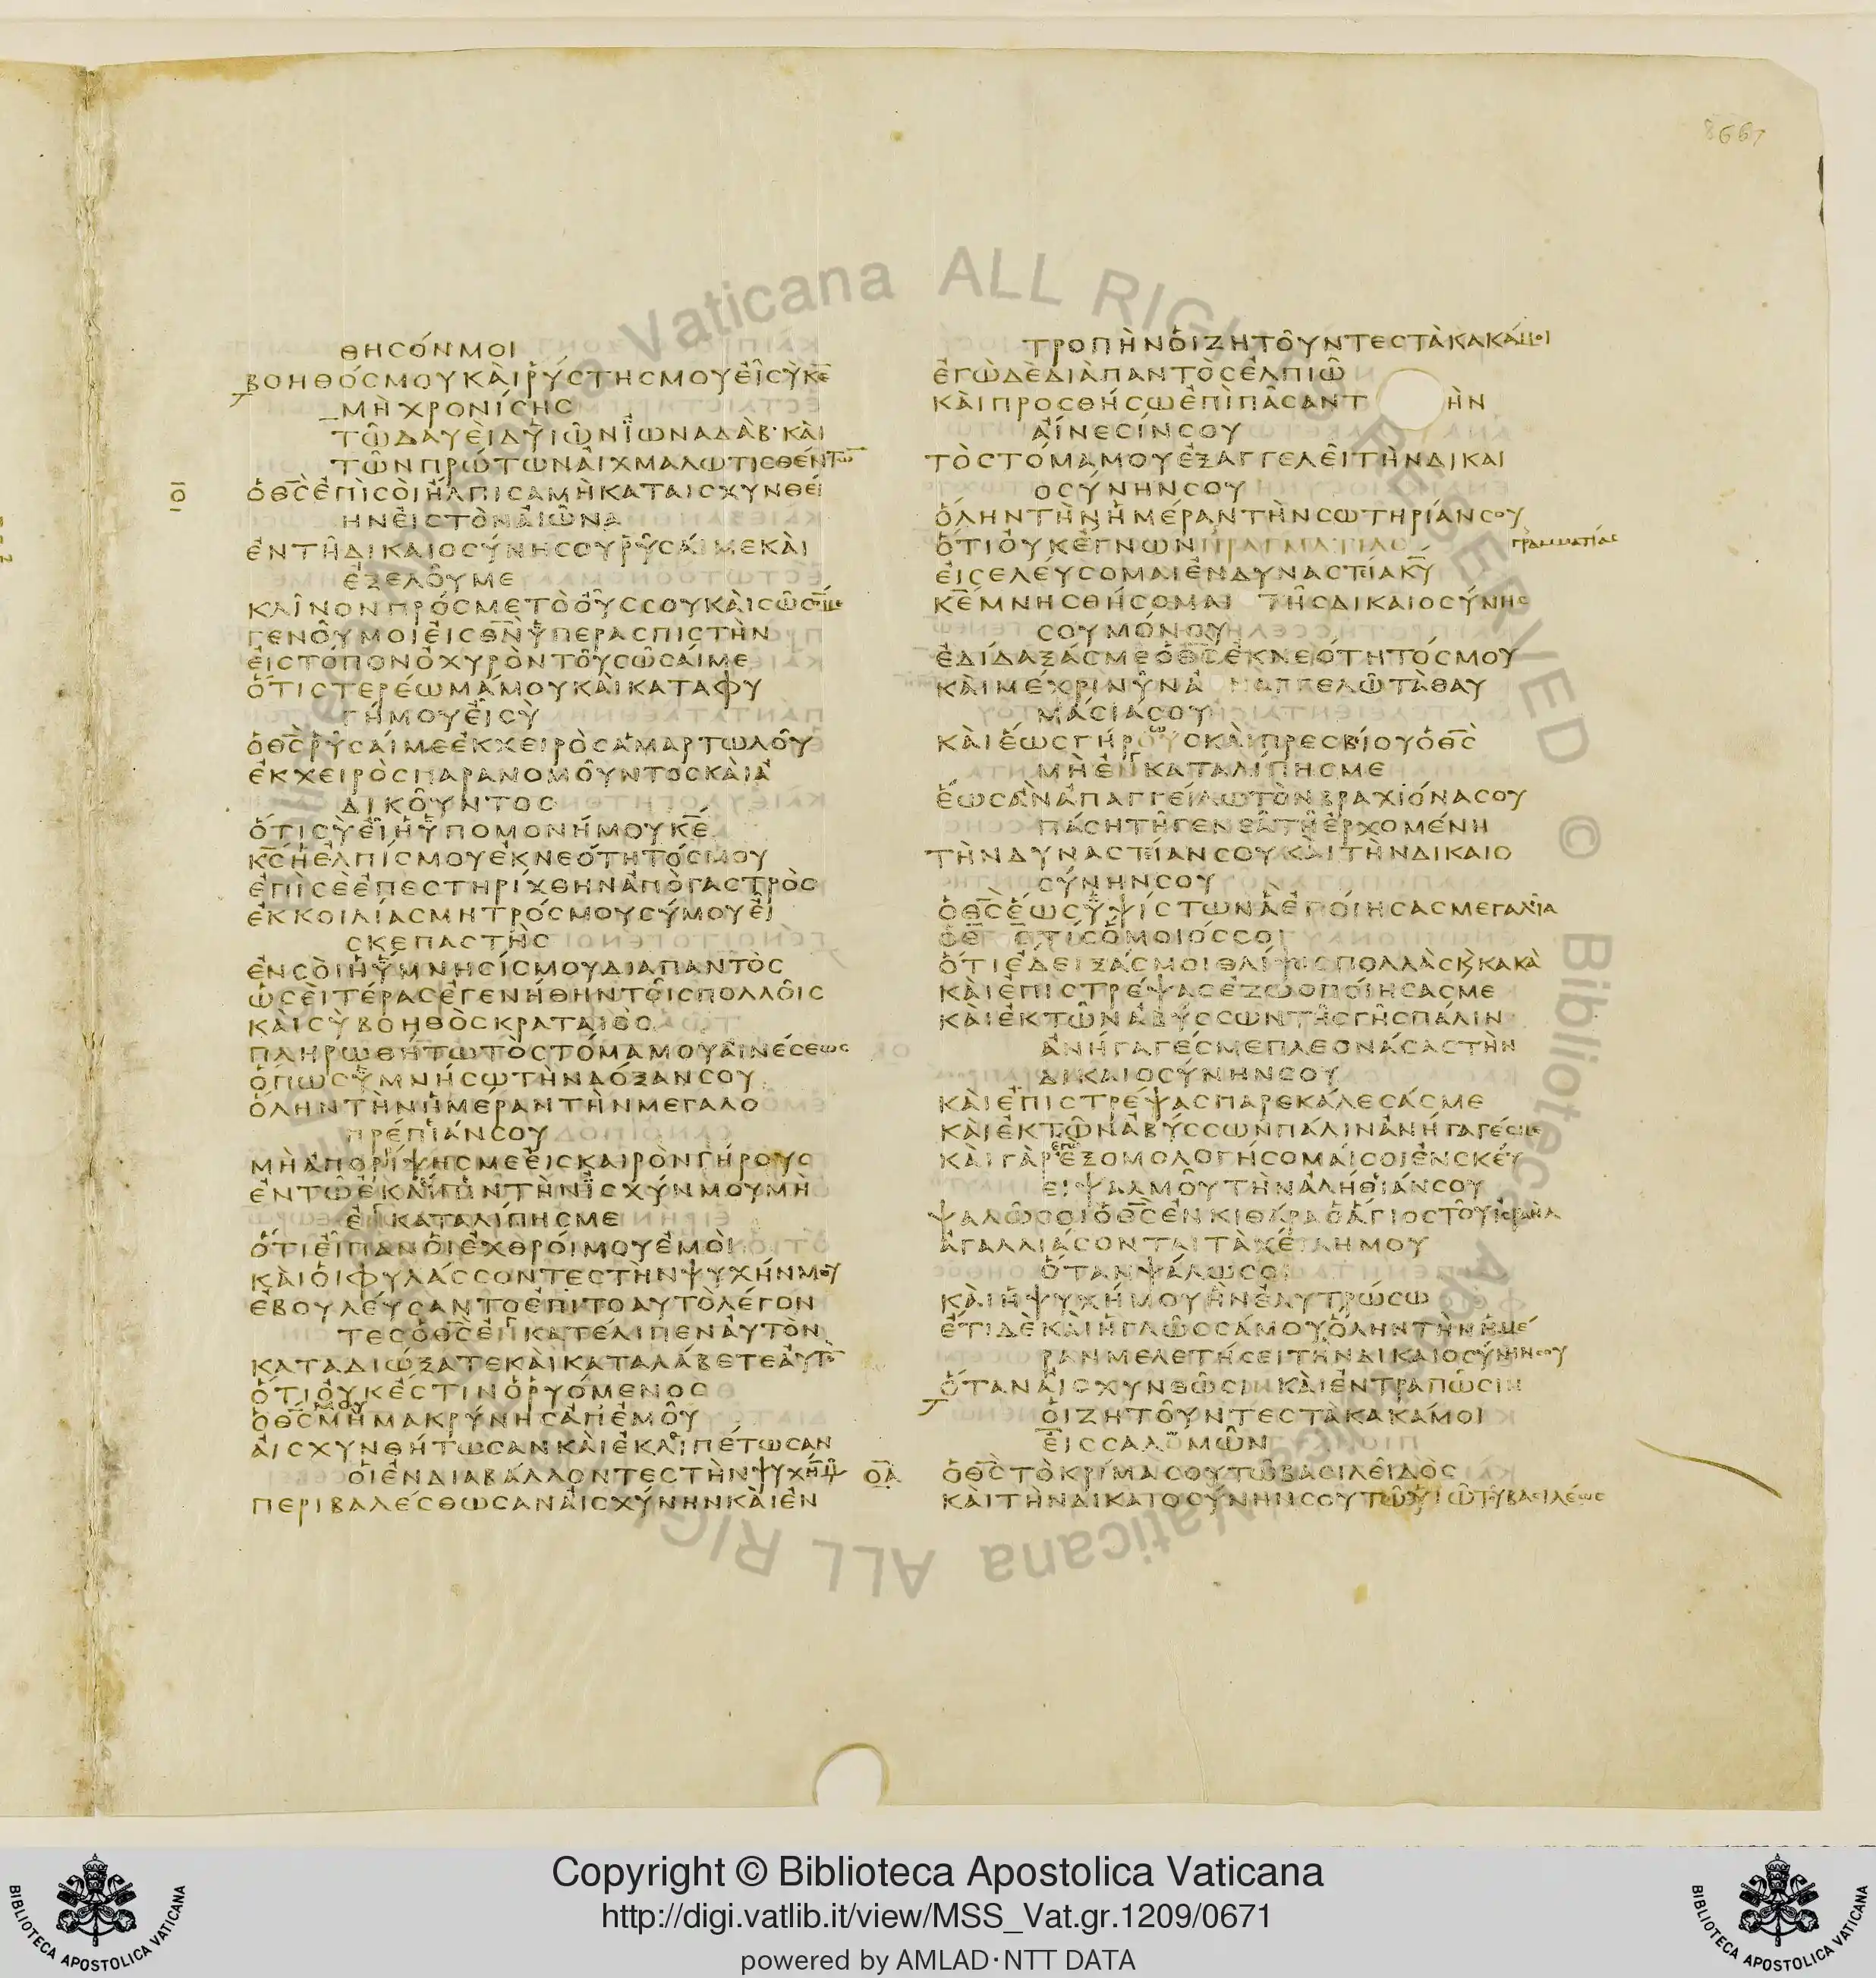 8667
ΘΗϹΟΝΜΟΙ
ΒΟΗΘΟϹΜΟΥΚΑΙΡΥϹΤΗϹΜΟΥΕΙϹΥΚΕ
ΜΗΧΡΟΝΙϹΗϹ
ΤΩΔΑΥΕΙΔΥΙΩΝΪΩΝΑΔΑΒ·ΚΑΙ
ΤΩΝΠΡΩΤΩΝΑΙΧΜΑΛΩΤΙϹΘΕΝΤΩ
Ο
ΟΘϹΕΠΙϹΟΙΗΛΠΙϹΑΜΗΚΑΤΑΙϹΧΥΝΘΕΙ
ΗΝΕΙϹΤΟΝΑΙΩΝΑ
ΕΝΤΗΔΙΚΑΙΟϹΥΝΗϹΟΥΡΥϹΑΙΜΕΚΑΙ
ΕΞΕΛΟΥΜΕ
ΚΛΙΝΟΝΠΡΟϹΜΕΤΟΟΥϹϹΟΥΚΑΙϹΩϹΟΜΕ
ΓΕΝΟΥΜΟΙΕΙϹΘΝΫΠΕΡΑϹΠΙϹΤΗΝ
ΕΙϹΤΟΠΟΝΟΧΥΡΟΝΤΟΥϹΩϹΑΙΜΕ
ΟΤΙϹΤΕΡΕΩΜΑΜΟΥΚΑΙΚΑΤΑΦΥ
ΓΗΜΟΥΕΙϹΥ
ΟΘϹΡΥϹΑΙΜΕΕΚΧΕΙΡΟϹΑΜΑΡΤΩΛΟΥ
ΕΚΧΕΙΡΟϹΠΑΡΑΝΟΜΟΥΝΤΟϹΚΑΙΑ
ΔΙΚΟΥΝΤΟϹ
ΟΤΙϹΥΕΙΗΫΠΟΜΟΝΗΜΟΥΚΕ
ΚϹΗΕΛΠΙϹΜΟΥΕΚΝΕΟΤΗΤΟϹΜΟΥ
ΕΠΙϹΕΕΠΕϹΤΗΡΙΧΘΗΝΑΠΟΓΑϹΤΡΟϹ
ΕΚΚΟΙΛΙΑϹΜΗΤΡΟϹΜΟΥϹΥΜΟΥΕΙ
ϹΚΕΠΑϹΤΗϹ
ΕΝϹΟΙΗΫΜΝΗϹΙϹΜΟΥΔΙΑΠΑΝΤΟϹ
ΩϹΕΙΤΕΡΑϹΕΓΕΝΗΘΗΝΤΟΙϹΠΟΛΛΟΙϹ
ΚΑΙϹΥΒΟΗΘΟϹΚΡΑΤΑΙΟϹ
ΠΛΗΡΩΘΗΤΩΤΟϹΤΟΜΑΜΟΥΑΙΝΕϹΕΩϹ
ΟΠΩϹΫΜΝΗϹΩΤΗΝΔΟΞΑΝϹΟΥ
ΟΛΗΝΤΗΝΗΜΕΡΑΝΤΗΝΜΕΓΑΛΟ
ΠΡΕΠΙΑΝϹΟΥ
ΜΗΑΠΟΡΙΨΗϹΜΕΕΙϹΚΑΙΡΟΝΓΗΡΟΥϹ
ΕΝΤΩΕΚΛΙΠΙΝΤΗΝΪϹΧΥΝΜΟΥΜΗ
ΕΓΚΑΤΑΛΙΠΗϹΜΕ
ΟΤΙΕΙΠΑΝΟΙΕΧΘΡΟΙΜΟΥΕΜΟΙ
ΚΑΙΟΙΦΥΛΑϹϹΟΝΤΕϹΤΗΝΨΥΧΗΝΜΟΥ
ΕΒΟΥΛΕΥϹΑΝΤΟΕΠΙΤΟΑΥΤΟΛΕΓΟΝ
ΤΕϹΟΘϹΕΓΚΑΤΕΛΙΠΕΝΑΥΤΟΝ
ΚΑΤΑΔΙΩΞΑΤΕΚΑΙΚΑΤΑΛΑΒΕΤΕΑΥΤΟ
ΟΤΙΟΥΚΕϹΤΙΝΟΡΥΟΜΕΝΟϹ
ΟΘϹΜΟΥΜΗΜΑΚΡΥΝΗϹΑΠΕΜΟΥ
ΑΙϹΧΥΝΘΗΤΩϹΑΝΚΑΙΕΚΛΙΠΕΤΩϹΑΝ
ΟΙΕΝΔΙΑΒΑΛΛΟΝΤΕϹΤΗΝΨΥΧΗΜΟΥ
ΠΕΡΙΒΑΛΕϹΘΩϹΑΝΑΙϹΧΥΝΗΝΚΑΙΕΝ
ΤΡΟΠΗΝΟΙΖΗΤΟΥΝΤΕϹΤΑΚΑΚΑΜΟΙ
ΕΓΩΔΕΔΙΑΠΑΝΤΟϹΕΛΠΙΩ
ΚΑΙΠΡΟϹΘΗϹΩΕΠΙΠΑϹΑΝΤ ΗΝ
ΑΙΝΕϹΙΝϹΟΥ
ΤΟϹΤΟΜΑΜΟΥΕΞΑΓΓΕΛΕΙΤΗΝΔΙΚΑΙ
ΟϹΥΝΗΝϹΟΥ
ΟΛΗΝΤΗΝΗΜΕΡΑΝΤΗΝϹΩΤΗΡΙΑΝϹΟΥ
ΟΤΙΟΥΚΕΓΝΩΝΠΡΑΓΜΑΤΙΑϹ ΓΡΑΜΜΑΤΙΑϹ
ΕΙϹΕΛΕΥϹΟΜΑΙΕΝΔΥΝΑϹΤΙΑΚΥ
ΚΕΜΝΗϹΘΗϹΟΜΑΙ ΤΗϹΔΙΚΑΙΟϹΥΝΗϹ
ϹΟΥΜΟΝΟΥ
ΕΔΙΔΑΞΑϹΜΕΟΘϹΕΚΝΕΟΤΗΤΟϹΜΟΥ
ΚΑΙΜΕΧΡΙΝΥΝΑ ΠΑΓΓΕΛΩΤΑΘΑΥ
ΜΑϹΙΑϹΟΥ
ΚΑΙΕΩϹΓΗΡΟΥϹΚΑΙΠΡΕϹΒΙΟΥΟΘϹ
ΜΗΕΓΚΑΤΑΛΙΠΗϹΜΕ
ΕΩϹΑΝΑΠΑΓΓΕΙΛΩΤΟΝΒΡΑΧΙΟΝΑϹΟΥ
ΠΑϹΗΤΗΓΕΝΕΑΤΗΕΡΧΟΜΕΝΗ
ΤΗΝΔΥΝΑϹΤΙΑΝϹΟΥΚΑΙΤΗΝΔΙΚΑΙΟ
ϹΥΝΗΝϹΟΥ
ΟΘϹΕΩϹΫΨΙϹΤΩΝΑΕΠΟΙΗϹΑϹΜΕΓΑΛΙΑ
ΟΘϹ ΤΙϹΟΜΟΙΟϹϹΟΙ
ΟΤΙΕΔΕΙΞΑϹΜΟΙΘΛΙΨΙϹΠΟΛΛΑϹϏΚΑΚΑ
ΚΑΙΕΠΙϹΤΡΕΨΑϹΕΖΩΟΠΟΙΗϹΑϹΜΕ
ΚΑΙΕΚΤΩΝΑΒΥϹϹΩΝΤΗϹΓΗϹΠΑΛΙΝ
ΑΝΗΓΑΓΕϹΜΕΠΛΕΟΝΑϹΑϹΤΗΝ
ΔΙΚΑΙΟϹΥΝΗΝϹΟΥ
ΚΑΙΕΠΙϹΤΡΕΨΑϹΠΑΡΕΚΑΛΕϹΑϹΜΕ
ΚΑΙΕΚΤΩΝΑΒΥϹϹΩΝΠΑΛΙΝΑΝΗΓΑΓΕϹΜΕ
ΚΑΙΓΑΡΕΓΩΕΞΟΜΟΛΟΓΗϹΟΜΑΙϹΟΙΕΝϹΚΕΥ
ΕΙΨΑΛΜΟΥΤΗΝΑΛΗΘΙΑΝϹΟΥ
ΨΑΛΩϹΟΙΟΘϹΕΝΚΙΘΑΡΑΟΑΓΙΟϹΤΟΥΙϹΡΑΗΛ
ΑΓΑΛΛΙΑϹΟΝΤΑΙΤΑΧΕΙΛΗΜΟΥ
ΟΤΑΝΨΑΛΩϹΟΙ
ΚΑΙΗΨΥΧΗΜΟΥΗΝΕΛΥΤΡΩϹΩ
ΕΤΙΔΕΚΑΙΗΓΛΩϹϹΑΜΟΥΟΛΗΝΤΗΝΗΜΕ
ΡΑΝΜΕΛΕΤΗϹΕΙΤΗΝΔΙΚΑΙΟϹΥΝΗΝϹΟΥ
ΟΤΑΝΑΙϹΧΥΝΘΩϹΙΝΚΑΙΕΝΤΡΑΠΩϹΙΝ
ΟΙΖΗΤΟΥΝΤΕϹΤΑΚΑΚΑΜΟΙ
ΕΙϹϹΑΛΩΜΩΝ
ΟΑ
ΟΘϹΤΟΚΡΙΜΑϹΟΥΤΩΒΑϹΙΛΕΙΔΟϹ
ΚΑΙΤΗΝΔΙΚΑΙΟϹΥΝΗΝϹΟΥΤΩΥΙΩΤΟΥΒΑϹΙΛΕΩϹ
Biblioteca Apostolica Vaticana ALL RIGHTS RESERVED ©
Copyright © Biblioteca Apostolica Vaticana
http://digi.vatlib.it/view/MSS_Vat.gr.1209/0671
powered by AMLAD·NTT DATA
BIBLIOTECA APOSTOLICA VATICANA
BIBLIOTECA APOSTOLICA VATICANA